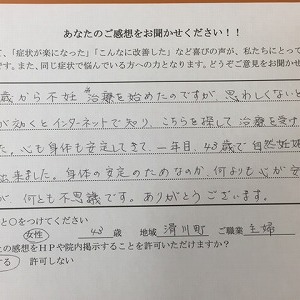 あなたのご感想をお聞かせください！！
て、「症状が楽になった」「こんなに改善した」など喜びの声が、私たちにとって
です。また、同じ症状で悩んでいる方への力となります。どうぞご意見をお聞かせ
歳から不妊治療を始めたのですが、思わしくないと
が効くとインターネットで知り、こちらを探して治療を受け
た。心も身体も安定してきて、一年目、43歳で自然妊娠
出来ました。身体の安定のためなのか、何よりも心が安
が、何とも不思議です。ありがとうございます。
と○をつけてください
女性 43 歳 地域 滑川町 ご職業 主婦
の感想をＨＰや院内掲示することを許可いただけますか？
する 許可しない